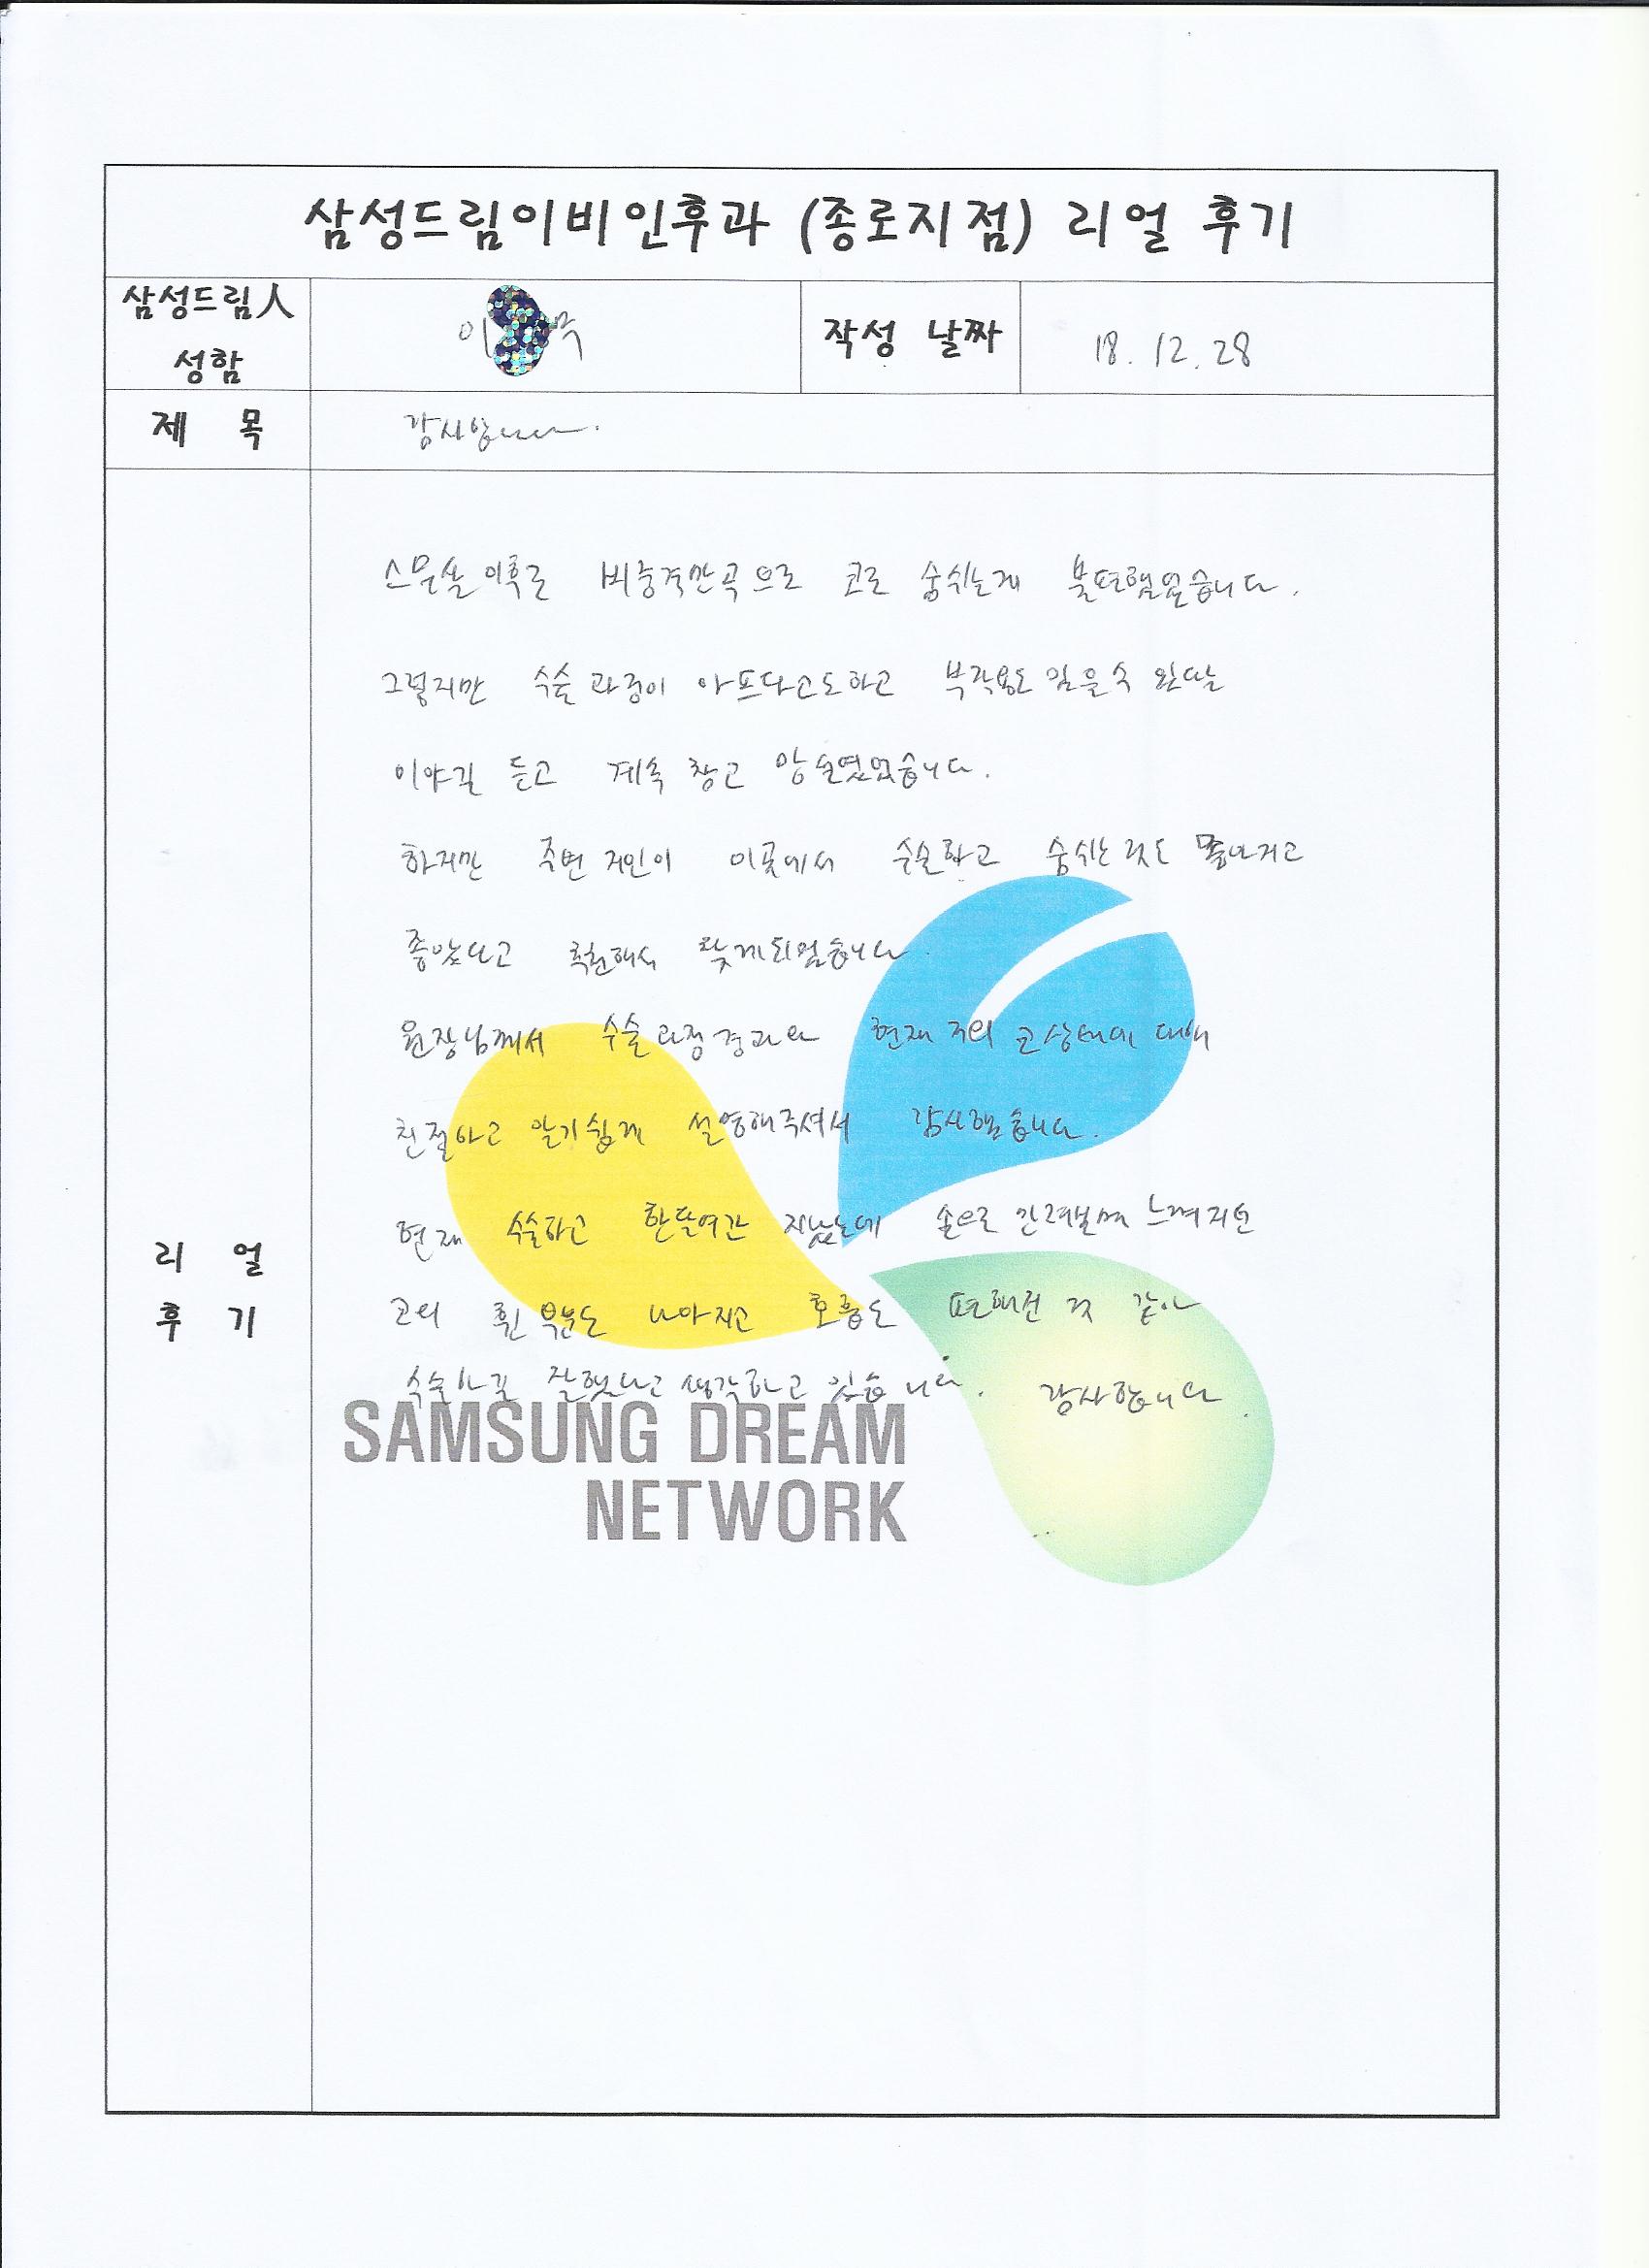 삼성드림이비인후과 (종로지점) 리얼 후기
삼성드림人 성함
이
작성 날짜
18. 12. 28
제 목
감사합니다.
스무살 이후로 비중격만곡으로 코로 숨쉬는게 불편했었습니다.
그렇지만 수술 과정이 아프다고도하고 부작용도 있을수 있다는
이야길 듣고 계속 참고 망설였었습니다.
하지만 주변 지인이 이곳에서 수술하고 숨쉬는것도 좋아지고
좋았다고 추천해서 찾게되었습니다.
원장님께서 수술과정 경과와 현재 저의 코상태에 대해
친절하고 알기쉽게 설명해주셔서 감사했습니다.
현재 수술하고 한달여간 지났는데 손으로 느껴지던
코의 휜 부분도 나아지고 호흡도 편해진 것 같아
수술하길 잘했다고 생각하고 있습니다. 감사합니다.
리 얼
후 기
SAMSUNG DREAM
NETWORK